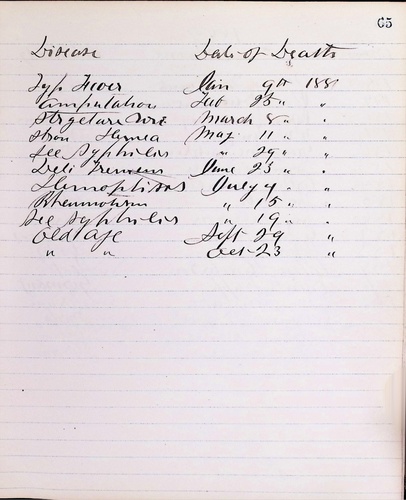 65
Disease Date of Death
Typ Fever Jan 9th 188
Amputation Feb 25 " "
Stricture Ure March 8 " "
Stran Hernea May 11 " "
Sec Syphilis " 29 " "
Deli Tremens June 23 " "
Hemoptisos July 9 " "
Rheumatism " 15 " "
Sec Syphilis " 19 " "
Old Age Sept 29 "
" " Oct 23 "